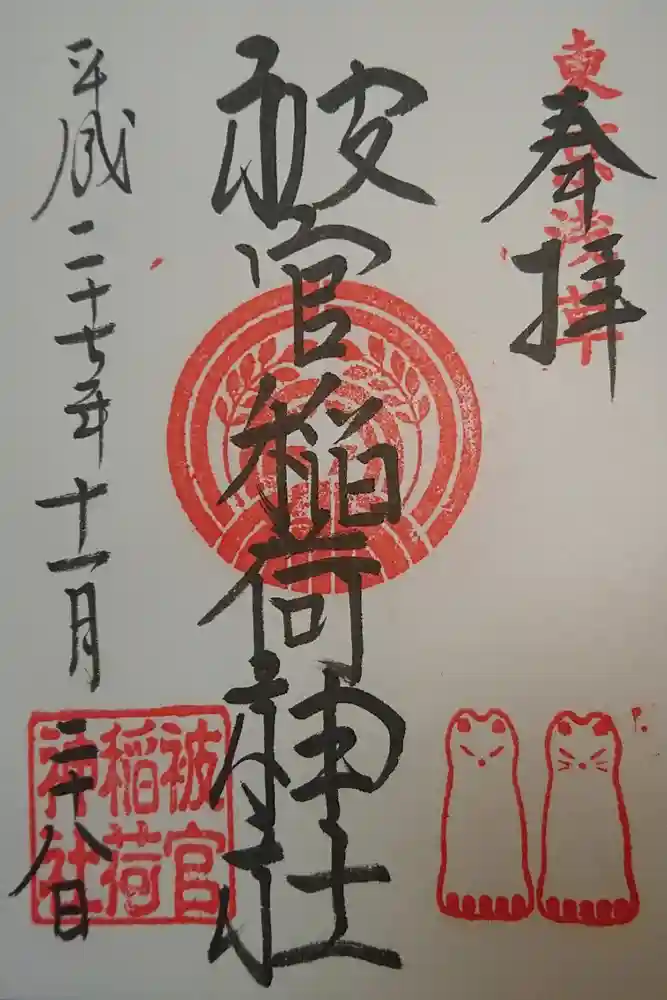 東京浅草
奉拝
被官稲荷神社
被官
稲荷
神社
平成二十七年十一月二十八日